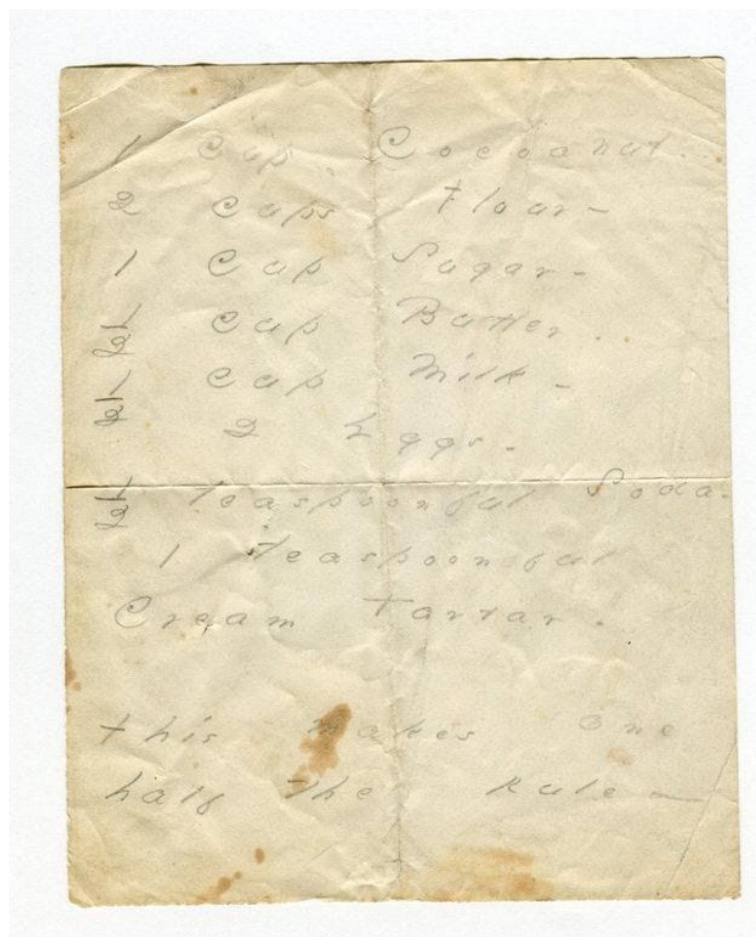 1 cup. Cocoanut.
2 cups flour-
1 cup Sugar-
1/2 cup Butter.
1/2 cup Milk-
2 Eggs.
1/2 teaspoonful Soda.
1 teaspoonful
Cream Tartar.
this makes one
half the Rule-